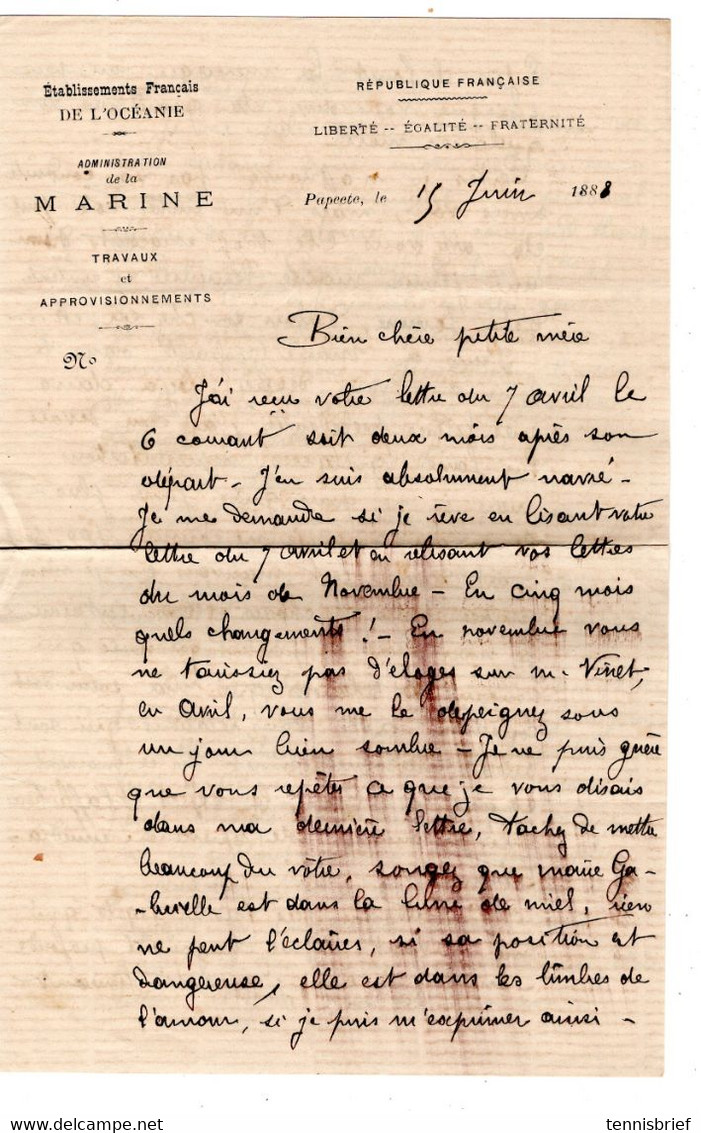 Établissements Français
DE L'OCÉANIE
ADMINISTRATION
de la
MARINE
TRAVAUX
et
APPROVISIONNEMENTS
No
RÉPUBLIQUE FRANÇAISE
LIBERTÉ -- ÉGALITÉ -- FRATERNITÉ
Papeete, le 15 Juin 1888
Bien chère petite mère
J'ai reçu votre lettre du 7 avril le
6 courant soit deux mois après son
départ - J'en suis absolument navré -
Je me demande si je rêve en lisant votre
lettre du 7 avril et en relisant vos lettres
du mois de Novembre - En cinq mois
quels changements ! - En novembre vous
ne tarissiez pas d'éloges sur M. Vinet,
en avril, vous me le dépeignez sous
un jour bien sombre - Je ne puis guère
que vous repéter ce que je vous disais
dans ma dernière lettre, tachez de mettre
beaucoup du vôtre, songez que Marie Ga-
-brielle est dans la lune de miel, rien
ne peut l'éclairer, si sa position est
dangereuse, elle est dans les limbres de
l'amour, si je puis m'exprimer ainsi -
tennisbrief.com